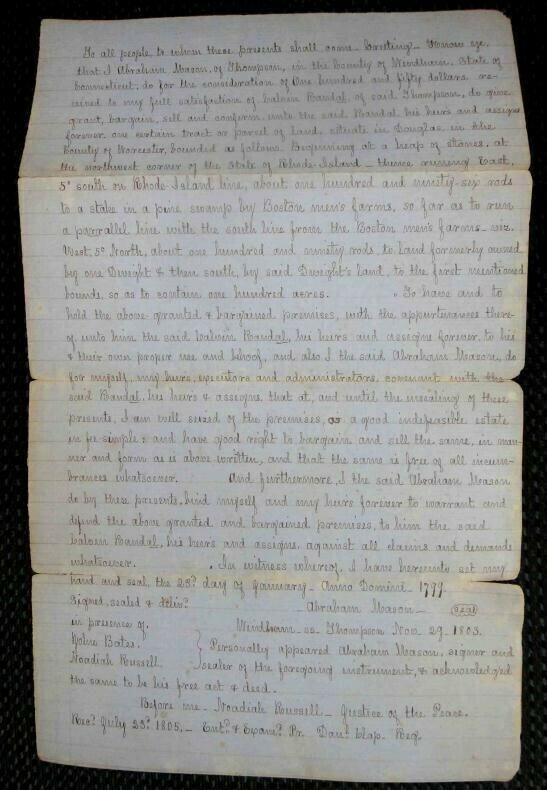 To all people to whom these presents shall come Greeting - Know ye,
that I Abraham Mason, of Thompson, in the County of Windham, State of
Connecticut, do for the consideration of One hundred and fifty dollars, re-
ceived to my full satisfaction of Calvin Randal, of said Thompson, do give,
grant, bargain, sell and confirm, unto the said Randal his heirs and assigns
forever, one certain tract or parcel of land, situate in Douglas, in the
County of Worcester, bounded as follows. Beginning at a heap of stones, at
the northwest corner of the State of Rhode-Island - thence running East,
5° south on Rhode-Island line, about one hundred and ninety-six rods
to a stake in a pine swamp by Boston men's farms, so far as to run
a parrallel line with the south line from the Boston men's farms - viz.
West, 5° North, about one hundred and ninety rods, to land formerly owned
by one Dwight & then south, by said Dwight's land, to the first mentioned
bounds, so as to contain one hundred acres. To have and to
hold the above granted & bargained premises, with the appurtinances there-
of, unto him the said Calvin Randal, his heirs and assigns forever, to his
& their own proper use and behoof, and also I the said Abraham Mason, do
for myself, my heirs, executors and administrators, covenant with the
said Randal, his heirs & assigns, that at, and until the ensealing of these
presents, I am well seized of the premises, as a good indefeasible estate
in fee simple & and have good right to bargain and sell the same, in man-
ner and form as is above written, and that the same is free of all incum-
brances whatsoever. And furthermore, I the said Abraham Mason
do by these presents, bind myself and my heirs forever to warrant and
defend the above granted and bargained premises, to him the said
Calvin Randal, his heirs and assigns, against all claims and demands
whatsoever. In witness whereof, I have hereunto set my
hand and seal, the 23d day of January - Anno Domini - 1799.
Signed, sealed & deliv'd Abraham Mason - Seal
in presence of, Windham - ss - Thompson Nov. 29 - 1803.
Bates. } Personally appeared Abraham Mason, signer and
Noadiah Russell. sealer of the foregoing instrument, & acknowledged
the same to be his free act & deed.
Before me - Noadiah Russell - Justice of the Peace.
Rec'd July 23d 1805. - Ent'd & Exam'd Pr. Dan'l Clap Reg.